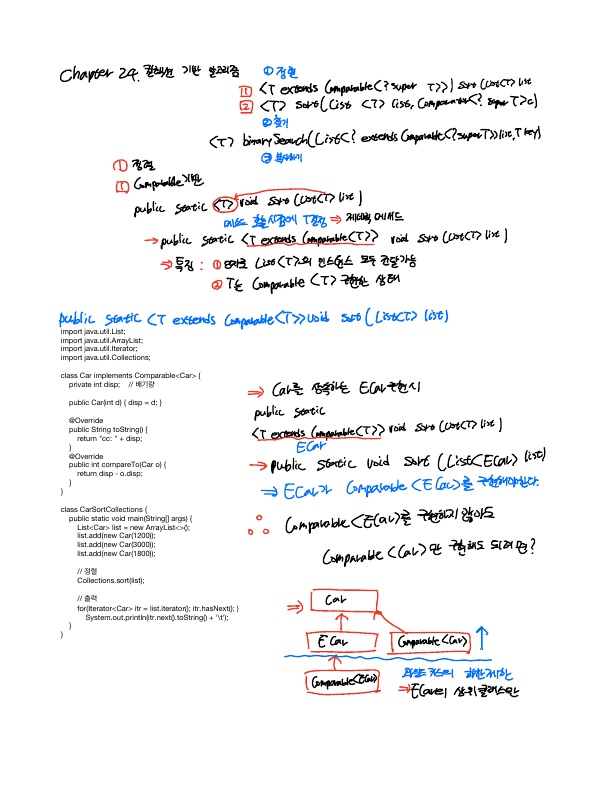 Chapter 24. 컬렉션 기반 알고리즘
① 정렬
① <T extends Comparable<? super T>> sort (List<T> list
② <T> sort(List <T> list, Comparator<? super T> c)
② 찾기
<T> binarySearch(List<? extends Comparable<? super T>> list, T key)
③ 복사하기
① 정렬
① Comparable 기반
public static <T> void sort (List<T> list)
메소드 호출시점에 T결정 → 제네릭 메서드
→ public static <T extends Comparable<T>> void sort (List<T> list)
⇒ 특징 : ① 인자로 List<T>의 인스턴스 모두 전달가능
② T는 Comparable <T> 구현한 상태
public static <T extends Comparable<T>> void sort (List<T> list)
import java.util.List;
import java.util.ArrayList;
import java.util.Iterator;
import java.util.Collections;
class Car implements Comparable<Car> {
private int disp;    // 배기량
public Car(int d) { disp = d; }
@Override
public String toString() {
return "cc: " + disp;
}
@Override
public int compareTo(Car o) {
return disp - o.disp;
}
}
class CarSortCollections {
public static void main(String[] args) {
List<Car> list = new ArrayList<>();
list.add(new Car(1200));
list.add(new Car(3000));
list.add(new Car(1800));
// 정렬
Collections.sort(list);
// 출력
for(Iterator<Car> itr = list.iterator(); itr.hasNext(); )
System.out.println(itr.next().toString() + '\t');
}
}
⇒ Car를 상속하는 ECar구현시
public static
<T extends Comparable<T>> void sort (List<T> list)
ECar
→ public static void sort (List<ECar> list)
⇒ ECar가 Comparable <ECar>를 구현해야한다.
∴ Comparable <ECar>를 구현하지 않아도
Comparable <Car>만 구현해도 되려면?
⇒ Car
ECar
Comparable<Car>
Comparable<ECar>
와일드카드의 하한제한
⇒ ECar의 상위클래스만